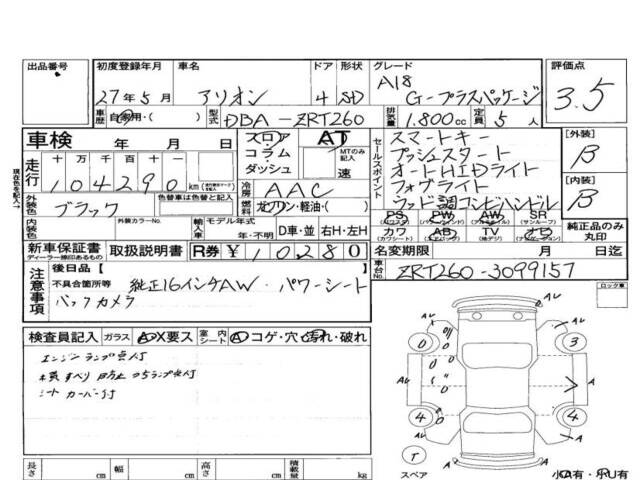 出品番号 初度登録年月 車名 ドア 形状 グレード 評価点
27年5月 アリオン 4 SD A18 G-プラスパッケージ 3.5
車歴 自家用・( ) 型式 DBA-ZRT260 排気量 1.800cc 定員 5人
車検 年 月 日
走行 十 万 千 百 十 一
104290 km
フロア・コラム・ダッシュ AT MTのみ記入 速
冷房 AAC
外装色 ブラック 色替車は色替と記入 燃料 ガソリン・軽油・( )
内装色 外装カラーNo. 輸入車 モデル年式 年・不明 D車・並 右H・左H
新車保証書 ディーラー捺印あるもの 取扱説明書 R券 ¥10280
セールスポイント
スマートキー
プッシュスタート
オートHIDライト
フォグライト
ウッド調コンビハンドル
[外装] B
[内装] B
PS PW AW SR
カワ AB TV ナビ
純正品のみ丸印
名変期限 月 日迄
車台No. ZRT260-3099157
注意事項 後日品【 】
不具合箇所等 純正16インチAW・パワーシート
バックカメラ
ロック車
検査員記入 ガラス A X要ス 室内シート A コゲ・穴・汚れ・破れ
エンジンランプ点灯
シートカバー付
長さ cm 幅 cm 高さ cm 積載量 kg
スペア
T
AU AU
3
4 4
A A
小A有・小U有
現在色を記入→